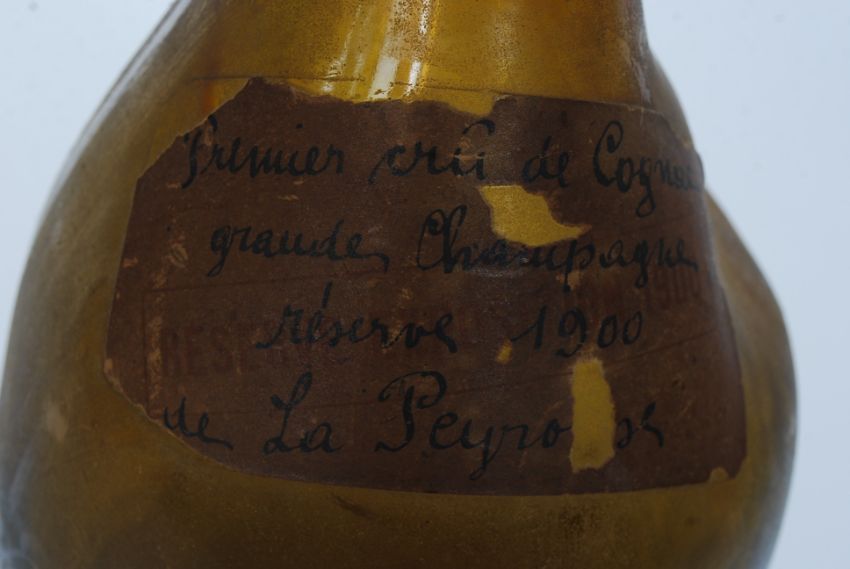 Premier crû de Cognac
grande Champagne
réserve 1900
de La Peyro se